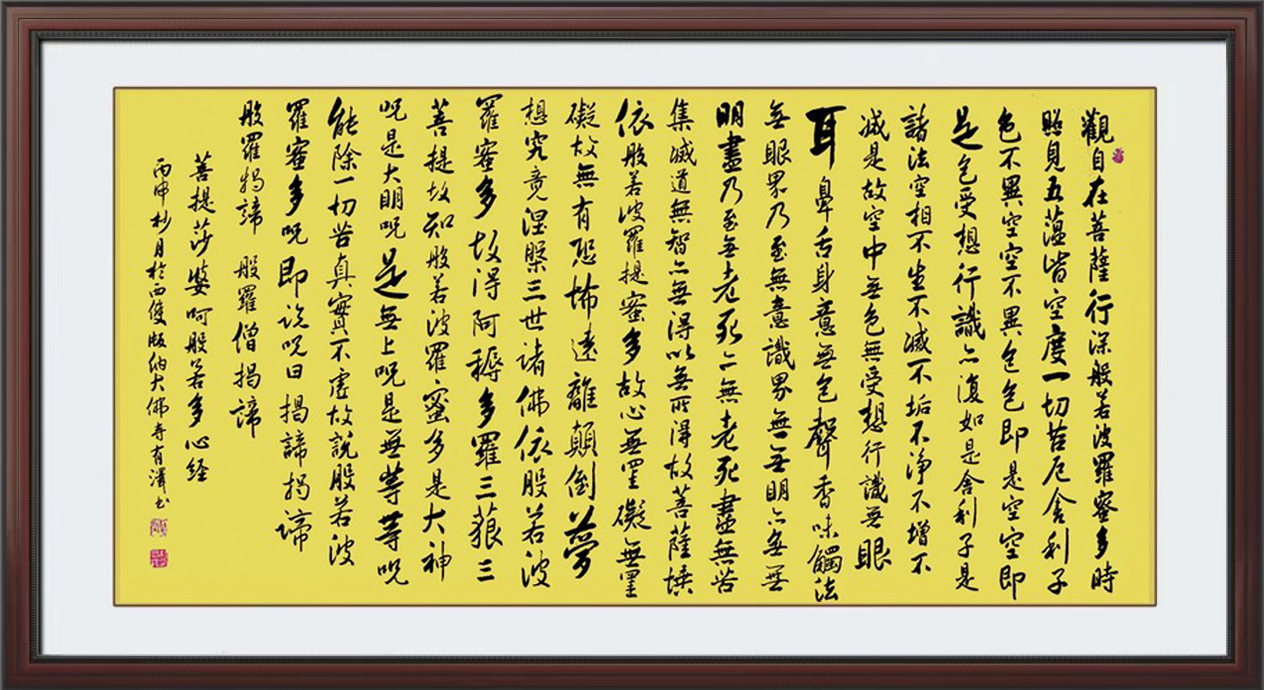 觀自在菩薩行深般若波羅蜜多時
照見五蕰皆空度一切苦厄舍利子
色不異空空不異色色即是空空即
是色受想行識亦復如是舍利子是
諸法空相不生不滅不垢不净不增不
减是故空中無色無受想行識無眼
耳鼻舌身意無色聲香味觸法
無眼界乃至無意識界無無明亦無無
明盡乃至無老死亦無老死盡無苦
集滅道無智亦無得以無所得故菩薩埵
依般若波羅提蜜多故心無罣礙無罣
礙故無有恐怖遠離顛倒夢
想究竟涅槃三世諸佛依般若波
羅蜜多故得阿耨多羅三藐三
菩提故知般若波羅蜜多是大神
呪是大明呪是無上呪是無等等呪
能除一切苦真實不虛故説般若波
羅蜜多呪即説呪曰揭諦揭諦
般羅揭諦 般羅僧揭諦
菩提莎婆呵般若多心经
丙申杪月於西雙版納大佛寺有澤书